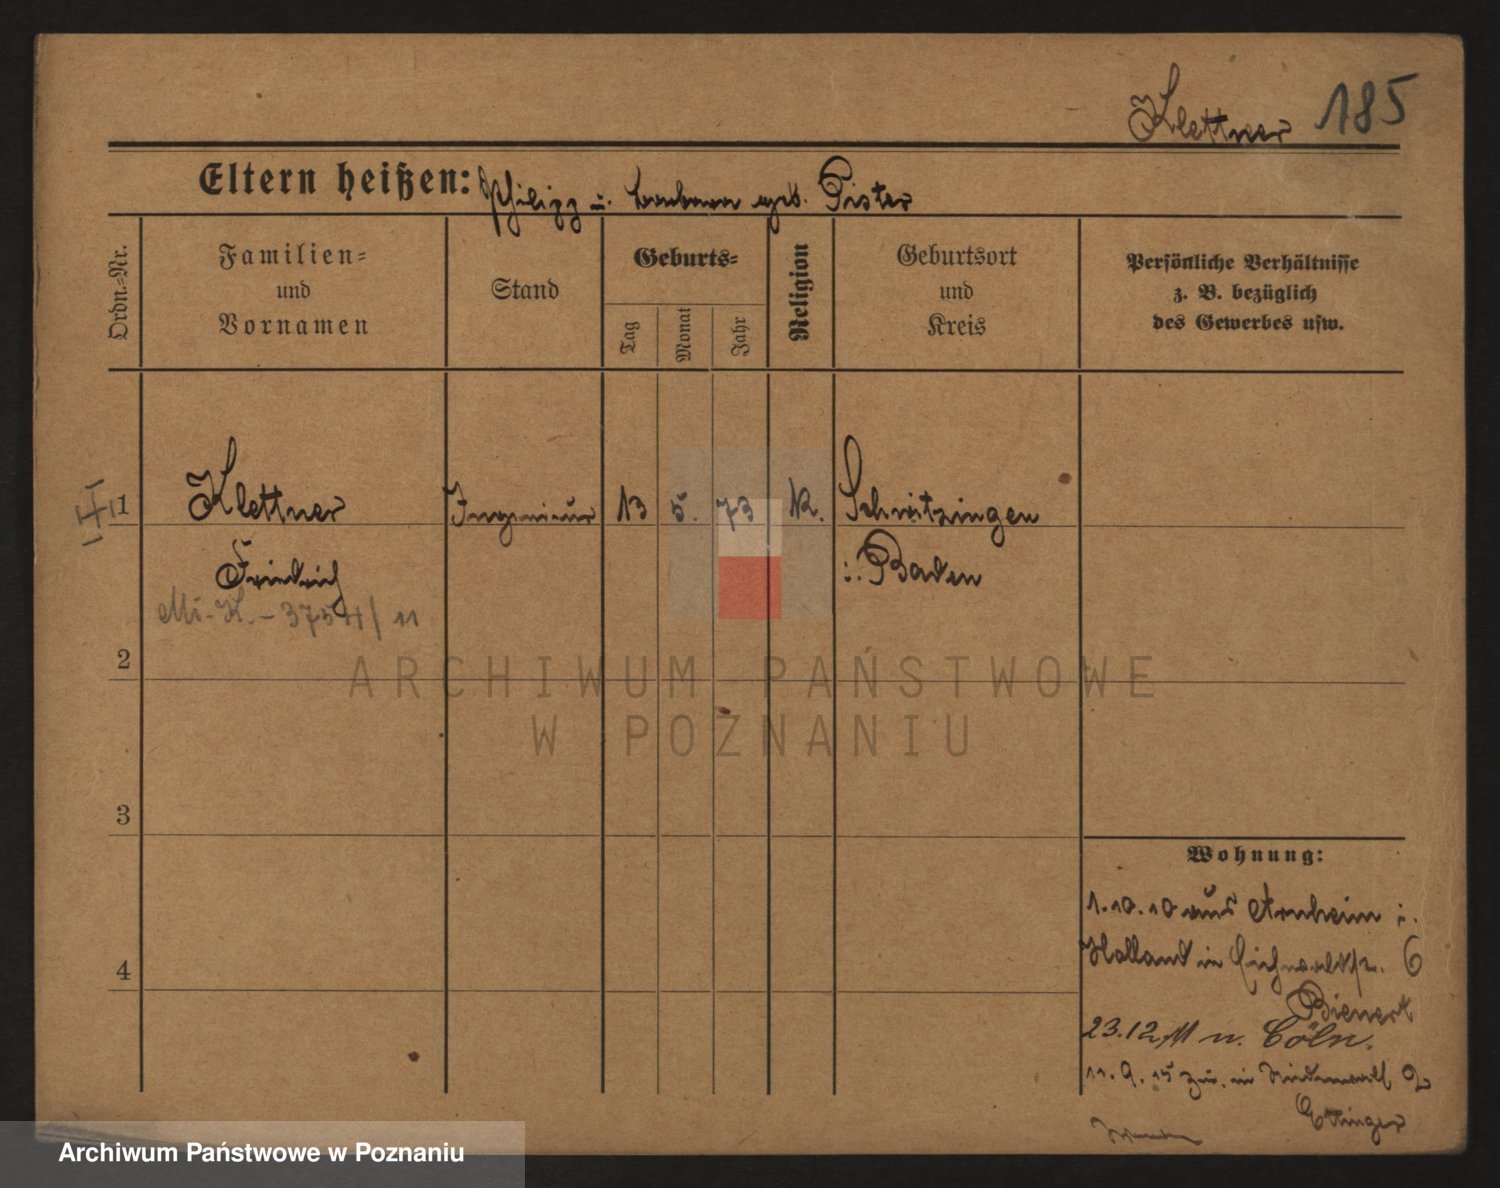 Klettner 185
Eltern heißen: Philipp u. Barbara geb. Pister
Ordn.=Nr.
Familien=
und
Vornamen
Stand
Geburts=
Tag
Monat
Jahr
Religion
Geburtsort
und
Kreis
Persönliche Verhältnisse
z. B. bezüglich
des Gewerbes usw.
1 Klettner Ingenieur 13 5. 73 K. Schwetzingen
Friedrich i. Baden
Mi-K. - 3754/11
2
ARCHIWUM PAŃSTWOWE
W POZNANIU
3
Wohnung:
1.10.10 aus Arnheim i.
4
Holland in Eichwaldstr. 6
Bienert
23.12.11 n. Cöln.
11.9.15 zur. in 2
Ettinger
Archiwum Państwowe w Poznaniu